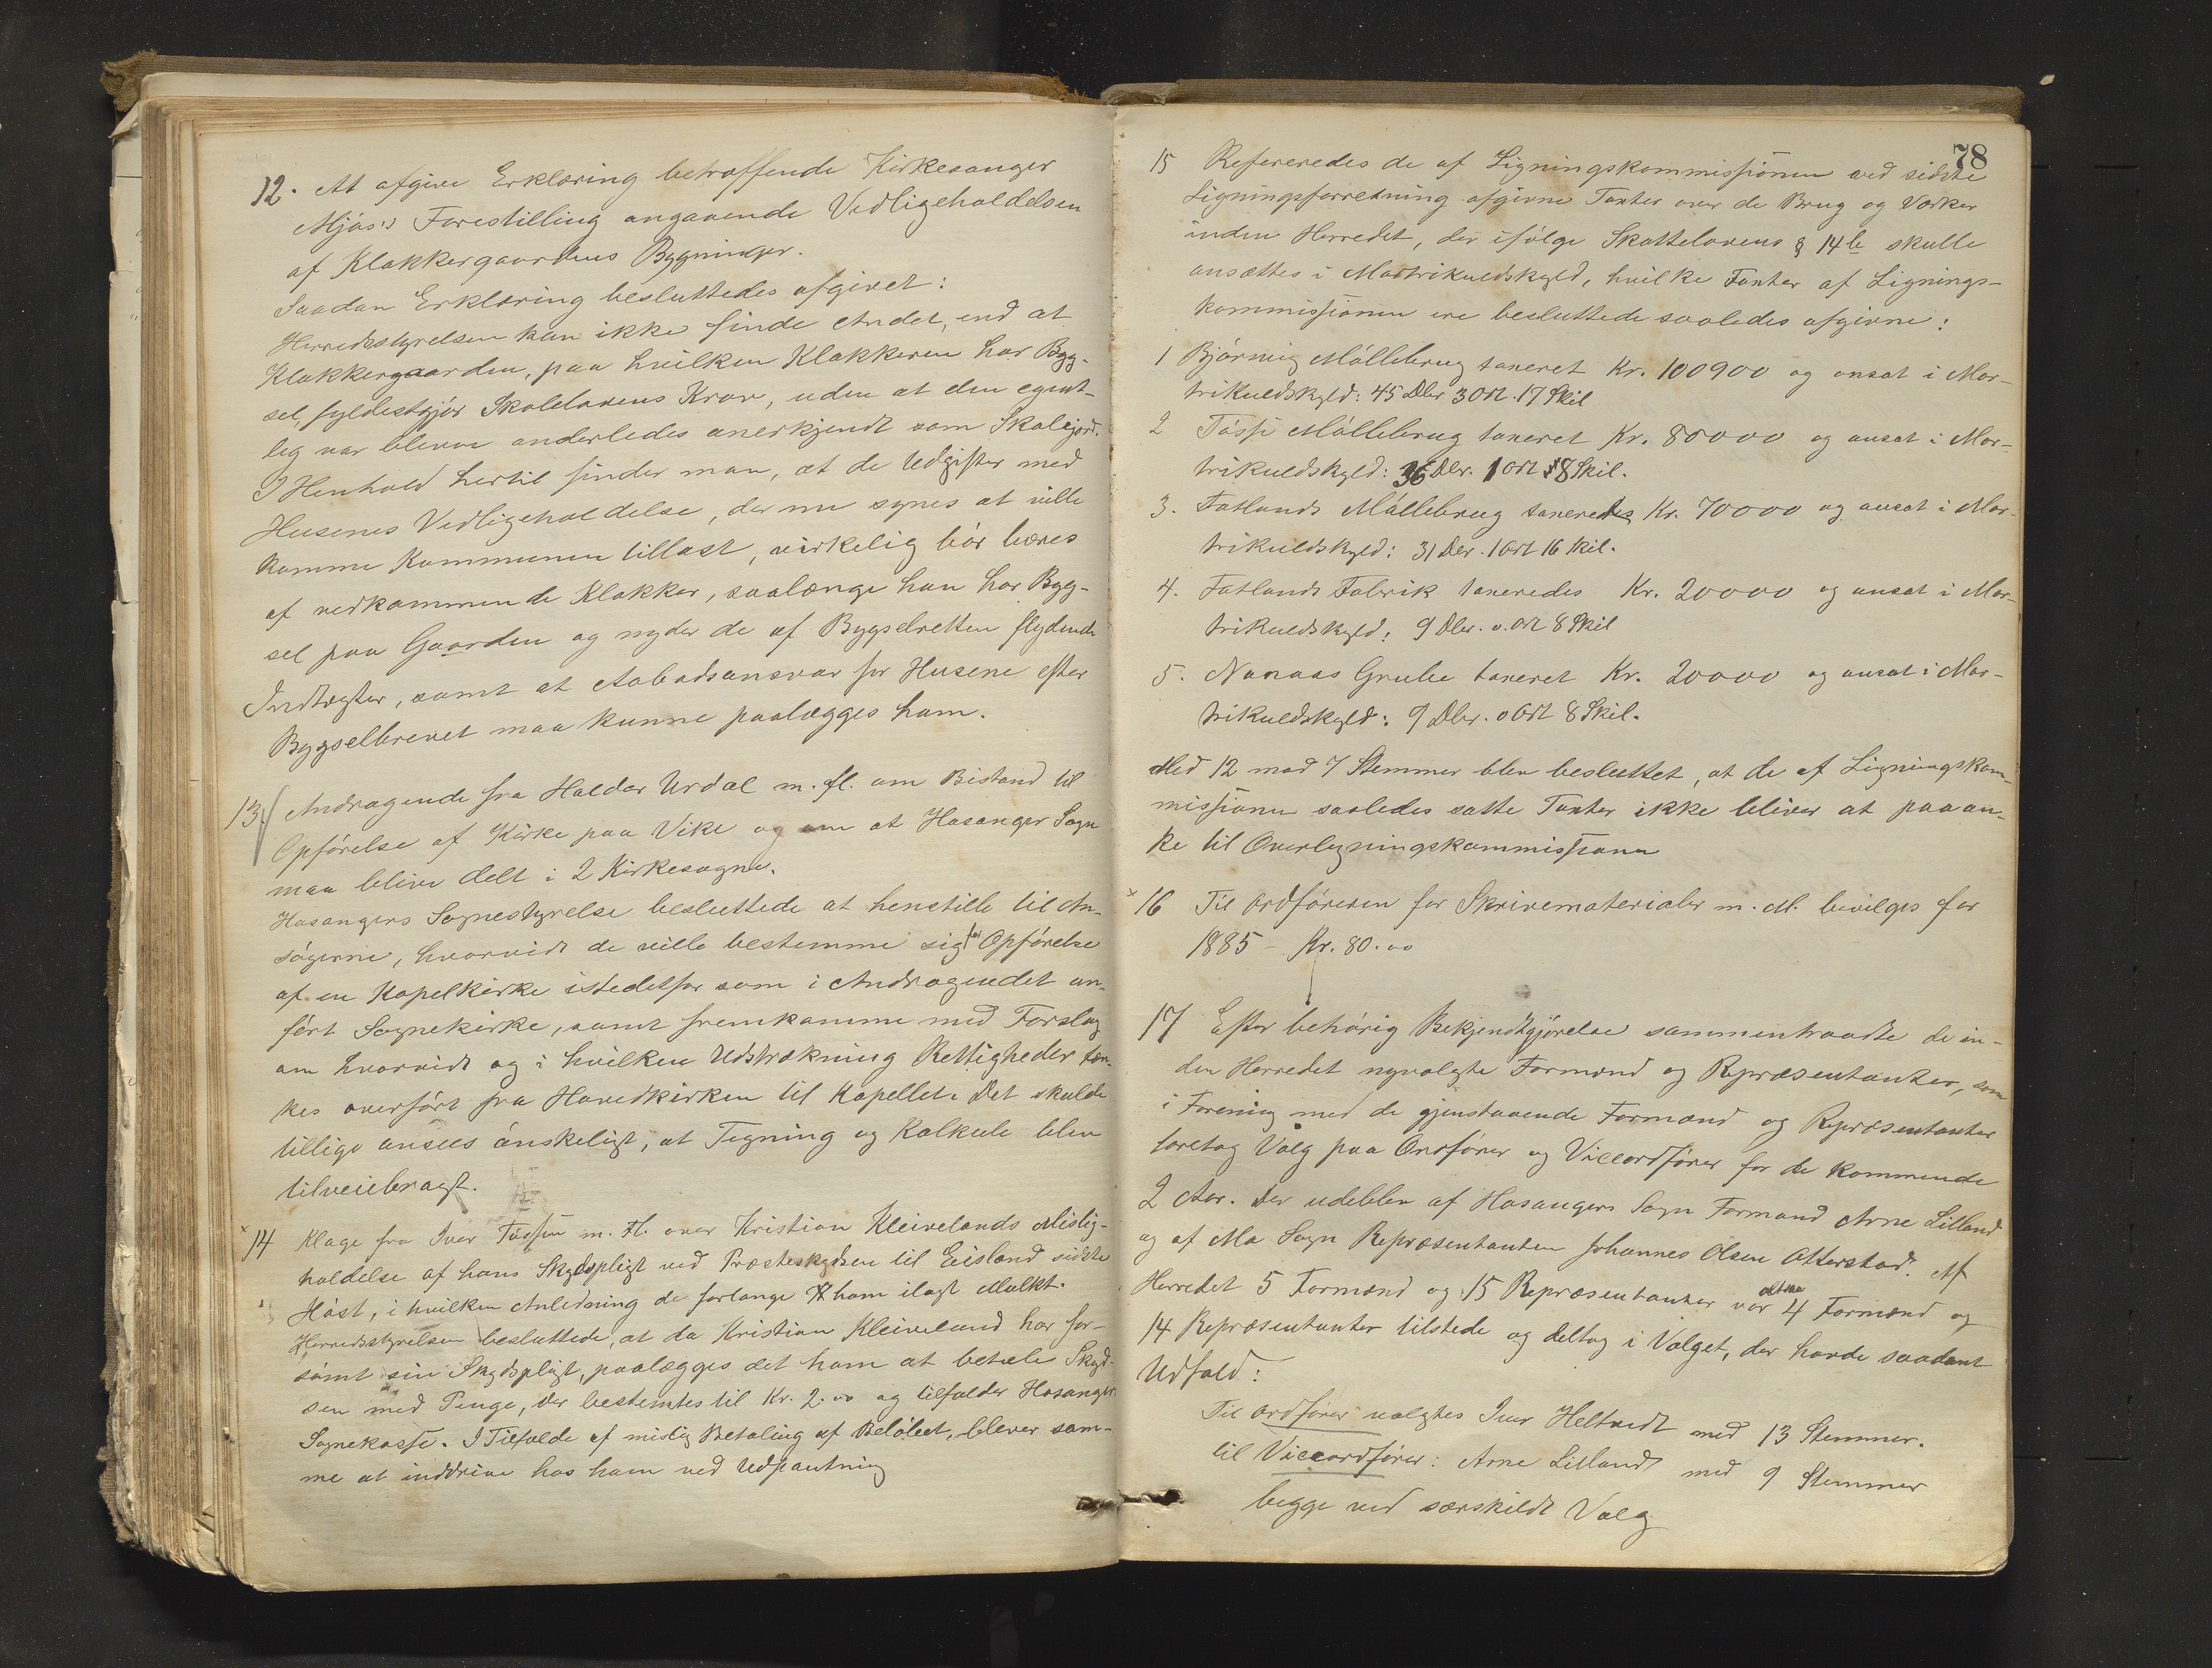 12. At afgive Erklæring betræffende Kirkesanger
Mjøs's Forestilling angaaende Vedligeholdelsen
af Klokkergaardens Bygninger.
Saadan Erklæring besluttedes afgivet:
Herredsstyrelsen kan ikke finde Andet, end at
Klokkergaarden, paa hvilken Klokkeren har Byg-
sel, fyldestgjør Skolelovens Krav, uden at den egent-
lig var bleven anderledes anerkjendt som Skolejord.
I Henhold hertil finder man, at de Udgifter med
Husenes Vedligeholdelse, der nu synes at ville
komme Kommunen tillast, virkelig bør bæres
af vedkommende Klokker, saalænge han har Byg-
sel paa Gaarden og nyder de af Bygselretten flydende
Indtægter, samt at Aabodsansvar for Husene efter
Bygselbrevet maa kunne paalægges ham.
13 Andragende fra Haldor Urdal m. fl. om Bistand til
Opførelse af Kirke paa Vike og om at Hosanger Sogn
maa blive delt i 2 Kirkesogne.
Hosangers Sognestyrelse besluttede at henstille til An-
søgerne, hvorvidt de ville bestemme sig for Opførelse
af en Kapelkirke istedetfor som i Andragendet an-
ført Sognekirke, samt fremkomme med Forslag
om hvorvidt og i hvilken Udstrækning Rettigheder tæn-
kes overført fra Hovedkirken til Kapellet. Det skulde
tillige ansees ønskeligt, at Tegning og Kalkule blev
tilveiebragt.
× 14 Klage fra Iver Tøssen m. Fl. over Kristian Kleivelands Mislig-
holdelse af hans Skydspligt ved Præsteskydsen til Eisland sidste
Høst, i hvilken Anledning de forlange ham ilagt Mulkt.
Herredsstyrelsen besluttede, at da Kristian Kleiveland har for-
sømt sin Skydspligt, paalægges det ham at betale Skyd-
sen med Penge, der bestemtes til Kr. 2.00 og tilfalder Hosanger
Sognekasse. I Tilfælde af mislig Betaling af Beløbet, bliver sam-
me at inddrive hos ham ved Udpantning
78
15 Refereredes de af Ligningskommissionen ved sidste
Ligningsforretning afgivne Taxter over de Brug og Værker
inden Herredet, der ifølge Skattelovens § 14 b skulle
ansættes i Matrikuldskyld, hvilke Taxter af Lignings-
kommissionen ere besluttede saaledes afgivne:
1 Bjørnig Møllebrug taxeret Kr. 100900 og ansat i Ma-
trikuldskyld: 45 Dlr 3 Ort. 17 Skil
2 Tøsse Møllebrug taxeret Kr. 80000 og ansat i Ma-
trikuldskyld: 36 Dlr. 1 Ort 8 Skil.
3. Fatlands Møllebrug taxeredes Kr. 70000 og ansat i Ma-
trikuldskyld: 31 Dlr. 1 Ort 16 Skil.
4. Fatlands Fabrik taxeredes Kr. 20000 og ansat i Ma-
trikuldskyld: 9 Dlr. 0. Ort 8 Skil
5. Nonaas Grube taxeret Kr. 20000 og ansat i Ma-
trikuldskyld: 9 Dlr. 0 Ort 8 Skil.
Med 12 mod 7 Stemmer blev besluttet, at de af Ligningskom-
missionen saaledes satte Taxter ikke bliver at paaan-
ke til Overligningskommissionen
× 16 Til Ordføreren for Skrivematerialer m. M. bevilges for
1885 - Kr. 80.00
17 Efter behørig Bekjendtgjørelse sammentraadte de in-
den Herredet nyvalgte Formænd og Repræsentanter, som
i Forening med de gjenstaaende Formænd og Repræsentanter
foretog Valg paa Ordfører og Viceordfører for de kommende
2 Aar. Der udeblev af Hosangers Sogn Formand Arne Litland
og af Mo Sogn Repræsentanten Johannes Olsen Otterstad. Af
Herredet 5 Formænd og 15 Repræsentanter var altsaa 4 Formænd og
14 Repræsentanter tilstede og deltog i Valget, der havde saadant
Udfald:
Til Ordfører valgtes Iver Heltvedt med 13 Stemmer.
til Viceordfører: Arne Litland med 9 Stemmer
begge ved særskildt Valg